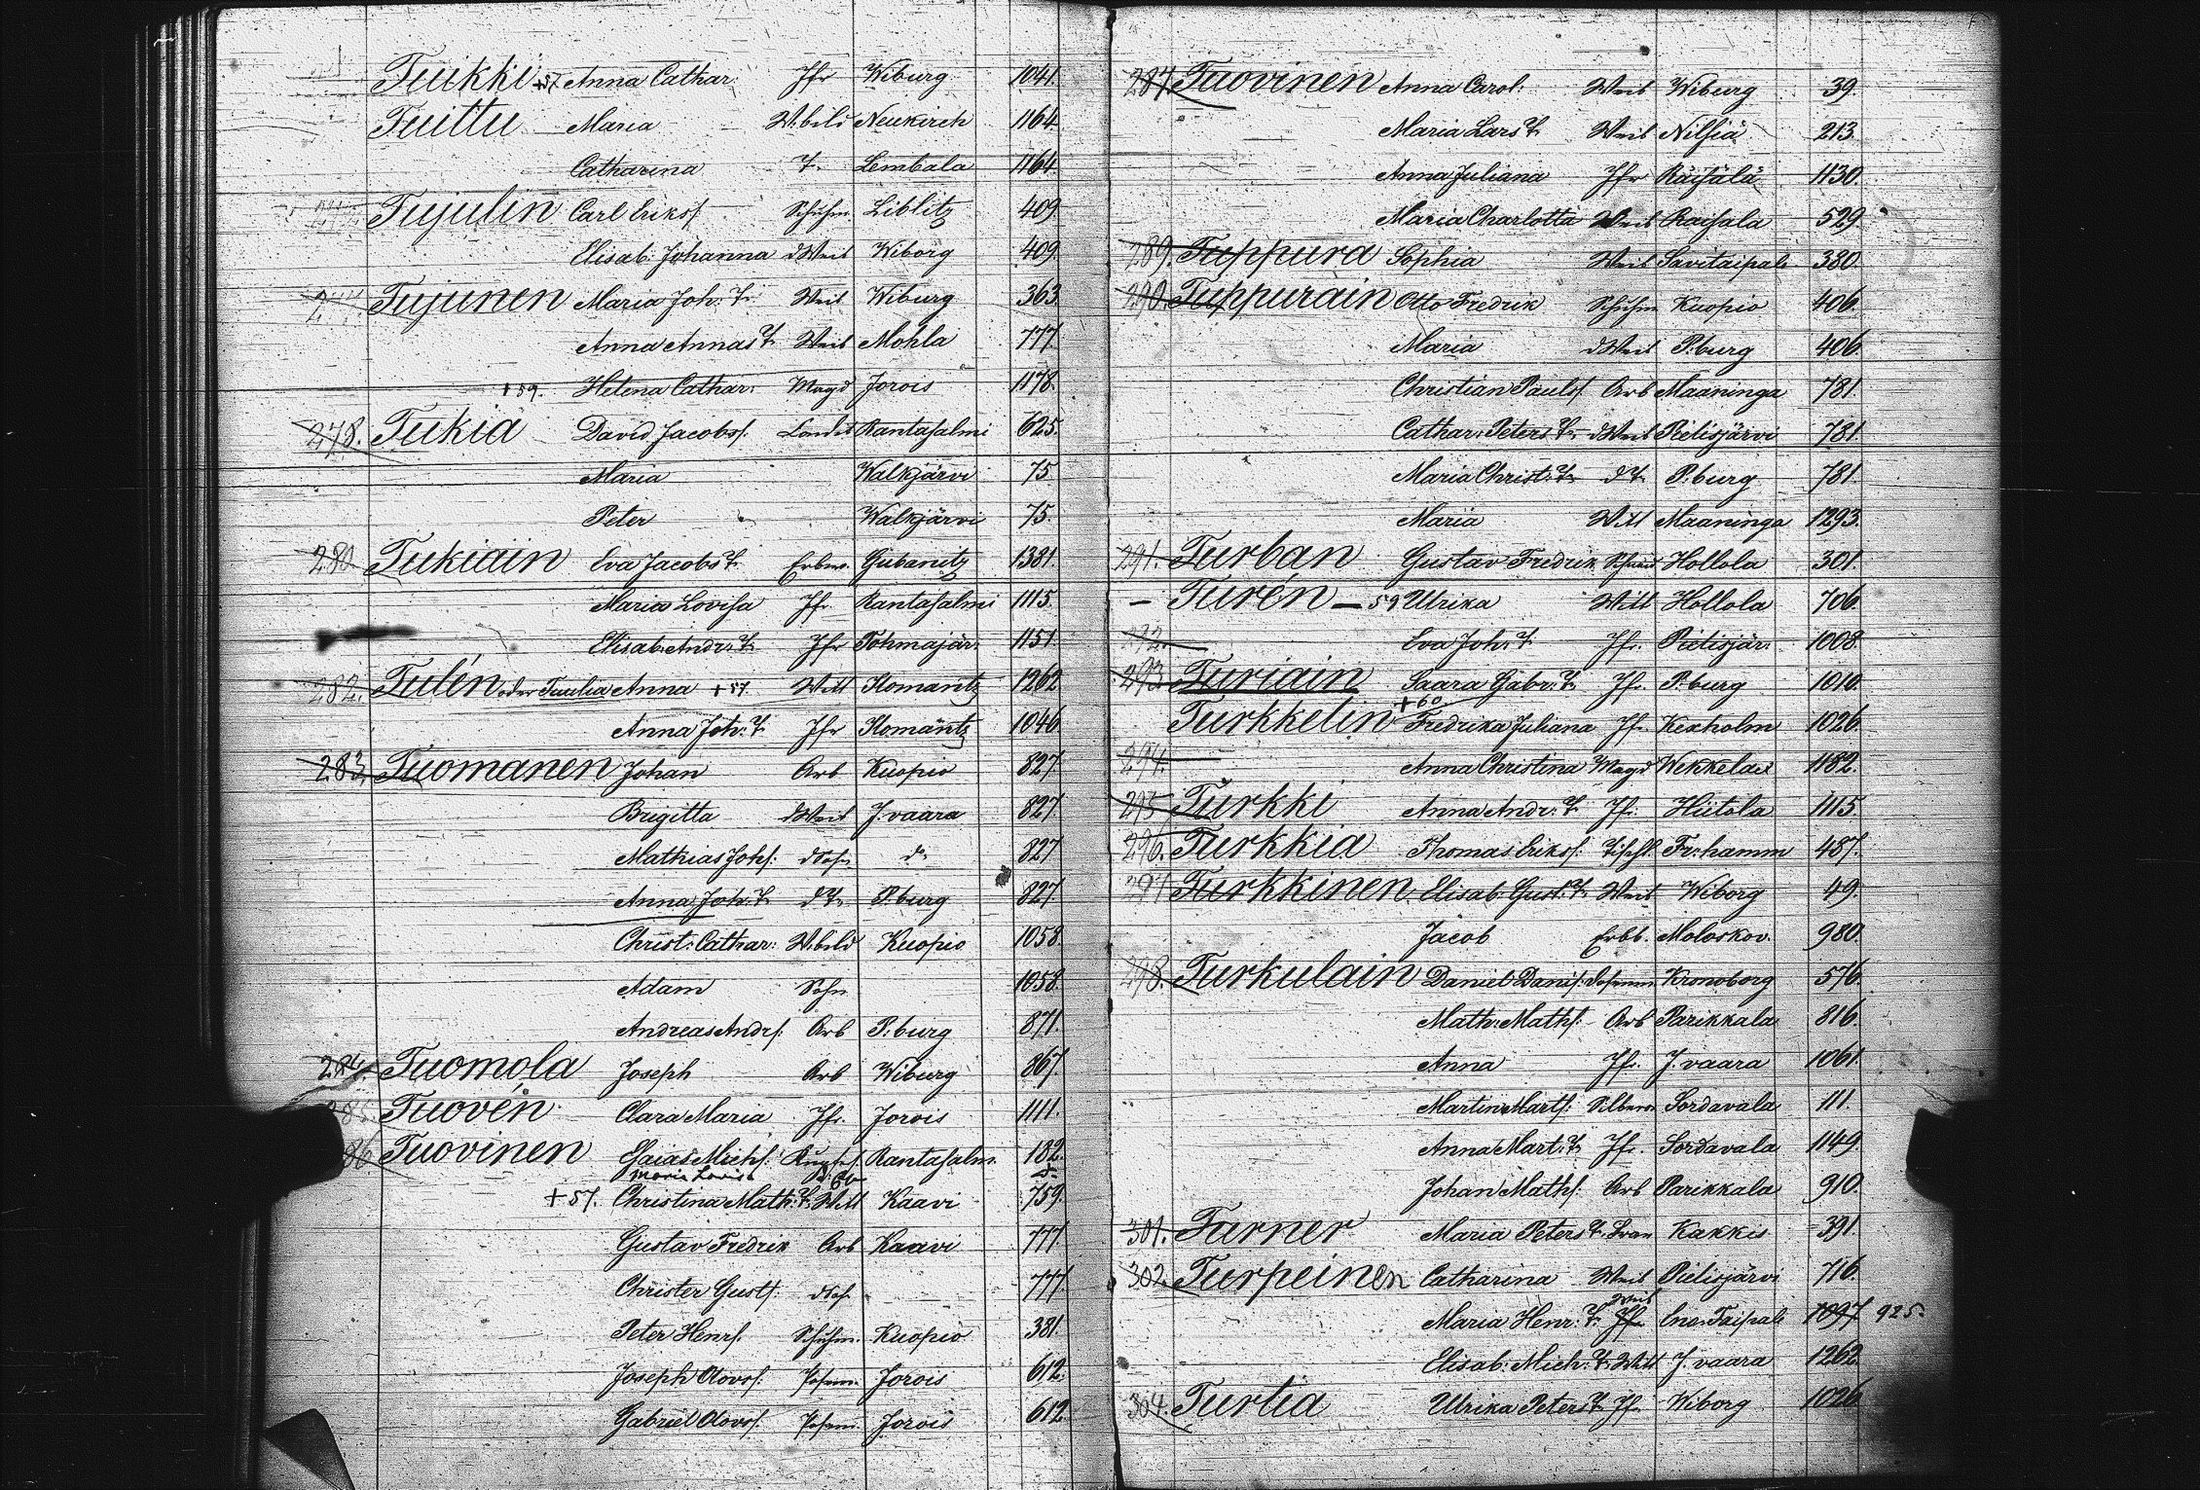 Tuikki +57 Anna Cathar. Jfr Wiburg 1041.
Tuittu Maria W.bild Neukirch 1164.
Catharina T. Lembala 1164.
Tujulin Carl Erikss. Schuhm. Liblitz 409.
Elisab. Johanna dWeib Wiborg 409.
Tujunen Maria Joh. T. Weib Wiburg 363.
Anna Annas T. Weib Mohla 777.
+59. Helena Cathar: Magd Jorois 1178.
278. Tukia David Jacobss. Rantasalmi 625.
Maria Walkjärvi 75.
Peter Walkjärvi 75.
280. Tukiain Eva Jacobs T. Erbw. Gubanitz 1381.
Maria Lovisa Jfr. Rantasalmi 1115.
Elisab: Andr: T. Jfr Tohmajär: 1151.
282. Tulén oder Tuulia Anna +57. Witt Ilomantz 1262
Anna Joh: T. Jfr Ilomäntz 1046.
283. Tuomanen Johan Arb Kuopio 827.
Brigitta dWeib J.vaara 827.
Mathias Johs. dSohn do 827
Anna Joh: T. d T. P.burg 827.
Christ: Cathar: W.bild Kuopio 1058.
Adam Sohn 1058.
Andreas Andrs. Arb P.burg 871.
284. Tuomola Joseph Arb Wiburg 867.
285. Tuovén Clara Maria Jfr. Jorois 1111.
286 Tuovinen Esaias Michs. Rantasalm. 182.
Maria Lovisa
+57. Christina Math: T. Witt Kaavi 759.
Gustav Fredrik Arb Kaavi 777.
Christer Gusts. dSoh. 777.
Peter Henrs. Schuhm. Kuopio 381.
Joseph Olovs. Posam. Jorois 612.
Gabriel Olovs. Posam. Jorois 612.
287. Tuovinen Anna Carol: Weib Wiburg 39.
Maria Lars T. Weib Nilsiä 213.
Anna Juliana Jfr Räisälä 1130.
Maria Charlotta Weib Raisala 529.
289. Tuppura Sophia Weib Savitaipale 380.
290. Tuppurain Otto Fredrik Schuhm Kuopio 406.
Maria dWeib P.burg 406.
Christian Pauls. Arb Maaninga 781.
Cathar: Peters T. dWeib Pielisjärvi 781.
Maria Christ: T. d T. P.burg 781.
Maria Witt Maaninga 1293.
291. Turban Gustav Fredrik Schneid Hollola 301.
— Turén — 59 Ulrika Witt Hollola 706.
292. Eva Joh: T. Jfr. Pielisjär: 1008.
293. Turiain Saara Gabr: T. Jfr. P.burg 1010.
Turkkelin +60 Fredrika Juliana Jfr. Kexholm 1026.
294. Anna Christina Magd Wekkelax 1182.
295 Turkki Anna Andr: T. Jfr. Hiitola 1115.
296. Turkkia Thomas Erikss. Tischl. Fr:hamm 487.
297 Turkkinen Elisab: Gust: T. Weib Wiborg 49.
Jacob Erbb. Moloskov. 980.
298. Turkulain Daniel Danis. Kronoborg 576.
Math: Maths. Arb Parikkala 816.
Anna Jfr. J.vaara 1061.
Martin Marts. Silber Sordavala 111.
Anna Mart: T. Jfr. Sordavala 1149.
Johan Maths. Arb Parikkala 910.
301. Turner Maria Peters T. Kakkis 391.
302. Turpeinen Catharina Weib Pielisjärvi 716.
Maria Henr: T. Jfr Weib Eno Taipale 1097 925.
Elisab: Mich: T. Witt J.vaara 1262
304. Turtia Ulrika Peters T. Jfr. Wiborg 1026